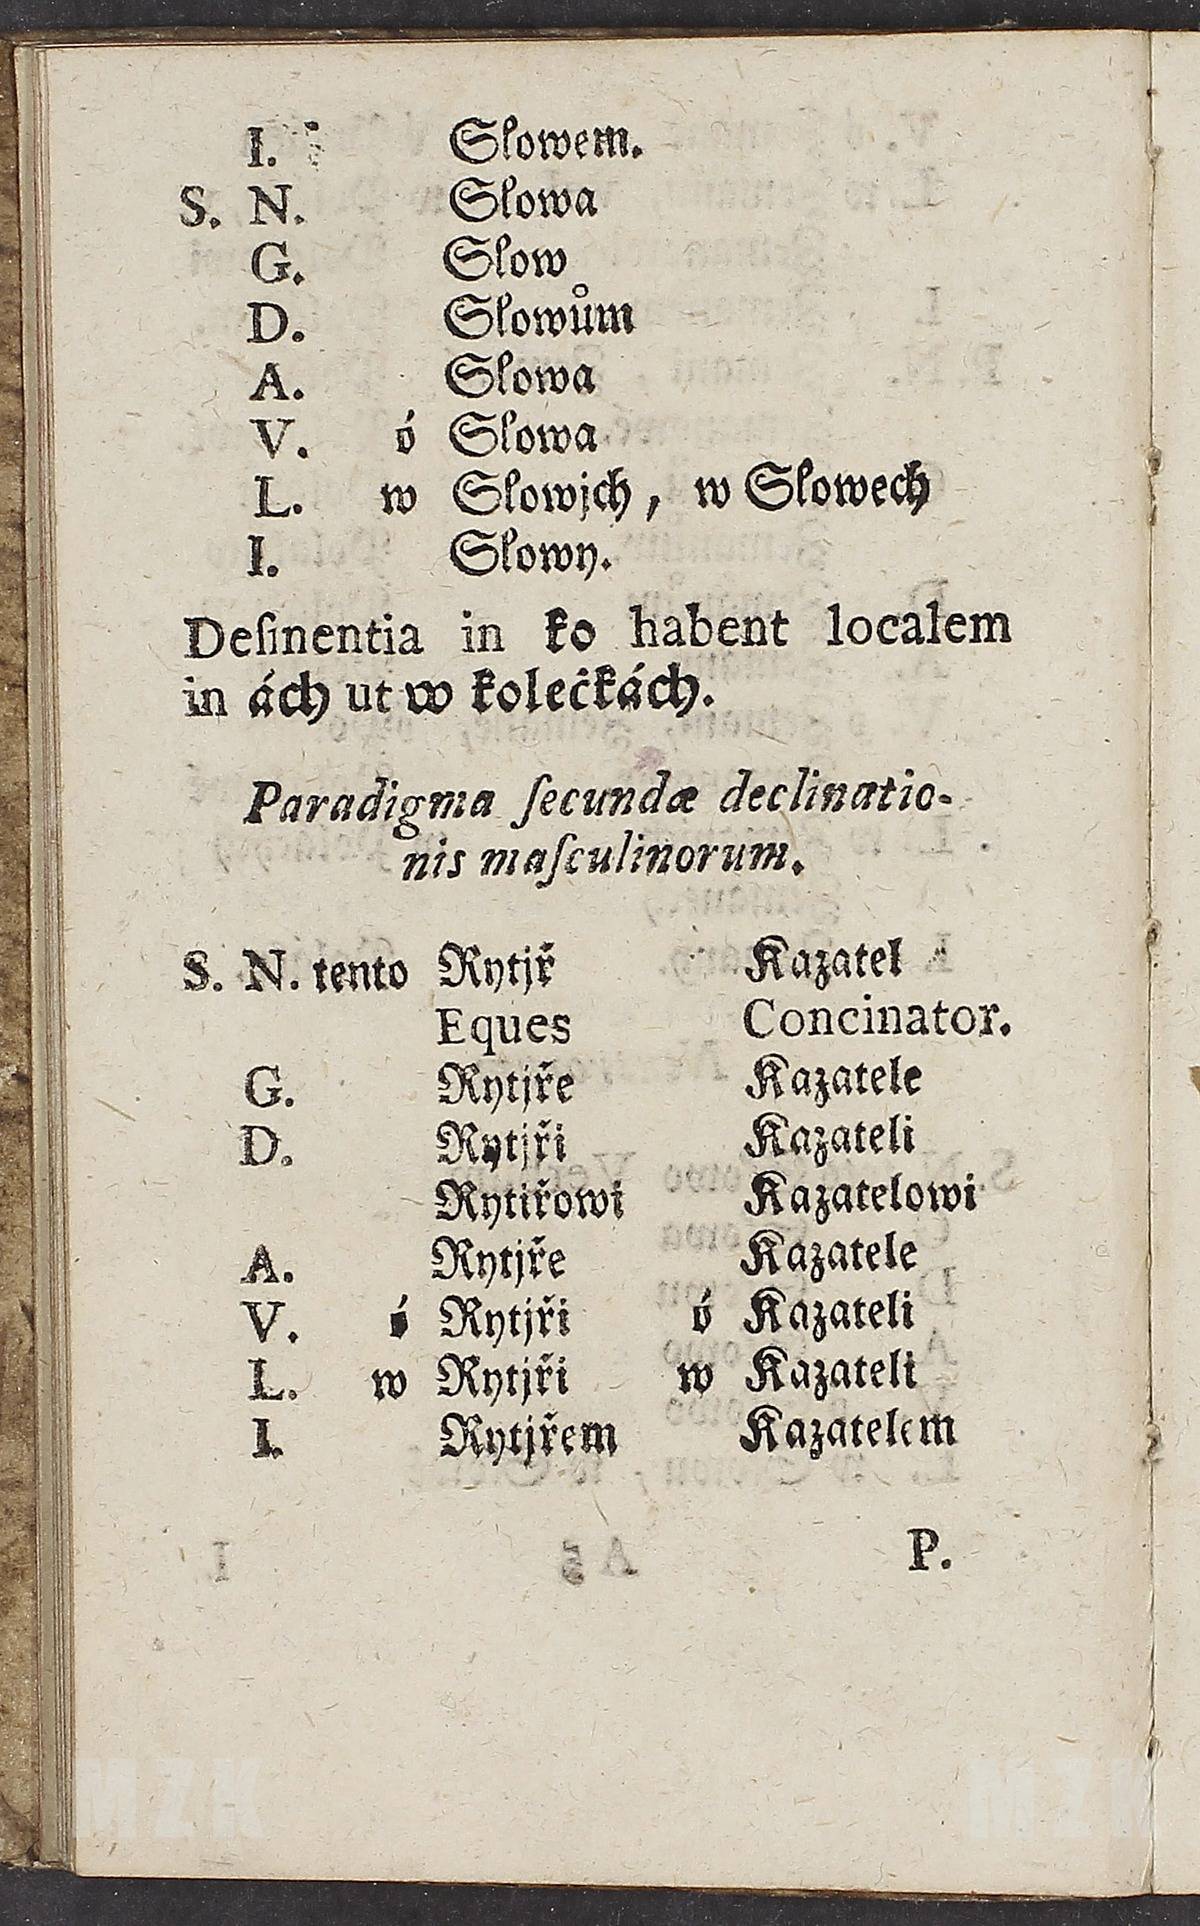 I. Slowem.
S. N. Slowa
G. Slow
D. Slowům
A. Slowa
V. ó Slowa
L. w Slowjch, w Slowech
I. Slowy.
Deſinentia in ko habent localem
in ách ut w kolečkách.
Paradigma ſecundæ declinatio-
nis maſculinorum.
S. N. tento Rytjř Kazatel
Eques Concinator.
G. Rytjře Kazatele
D. Rytjři Kazateli
Rytiřowi Kazatelowi
A. Rytjře Kazatele
V. ó Rytjři ó Kazateli
L. w Rytjři w Kazateli
I. Rytjřem Kazatelem
P.
MZK MZK